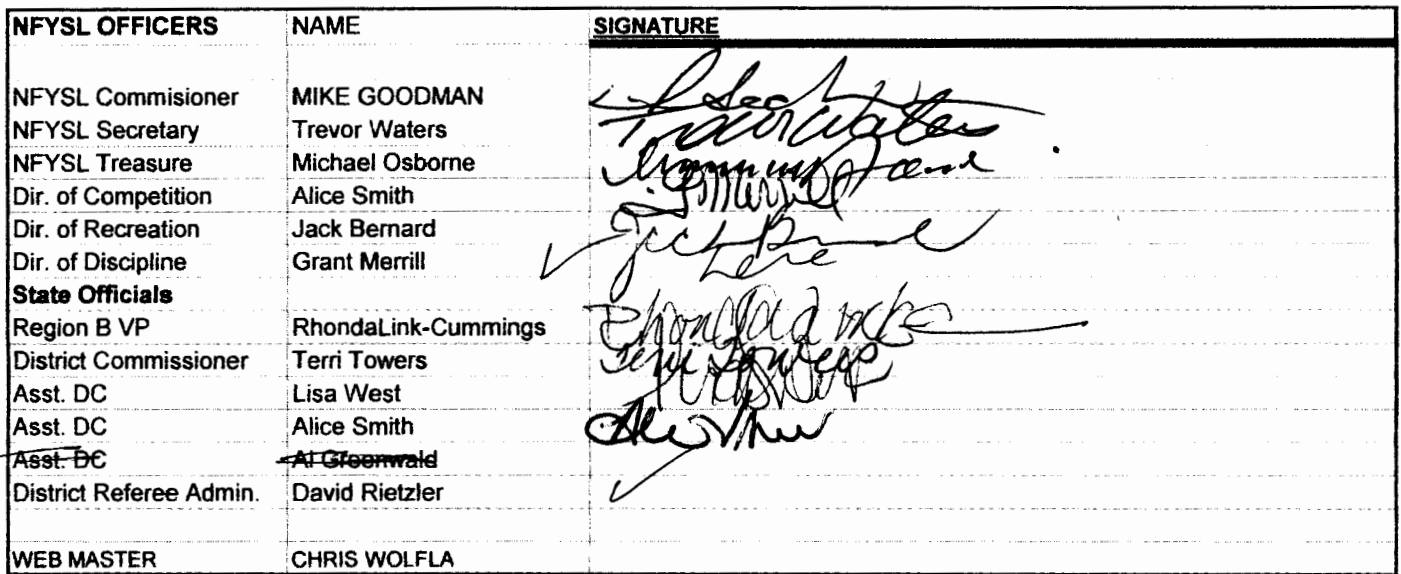 NFYSL OFFICERS NAME SIGNATURE
NFYSL Commisioner MIKE GOODMAN
NFYSL Secretary Trevor Waters Trevor Waters
NFYSL Treasure Michael Osborne
Dir. of Competition Alice Smith
Dir. of Recreation Jack Bernard
Dir. of Discipline Grant Merrill
State Officials
Region B VP RhondaLink-Cummings
District Commissioner Terri Towers Terri Towers
Asst. DC Lisa West
Asst. DC Alice Smith
Asst. DC Al Greenwald
District Referee Admin. David Rietzler
WEB MASTER CHRIS WOLFLA